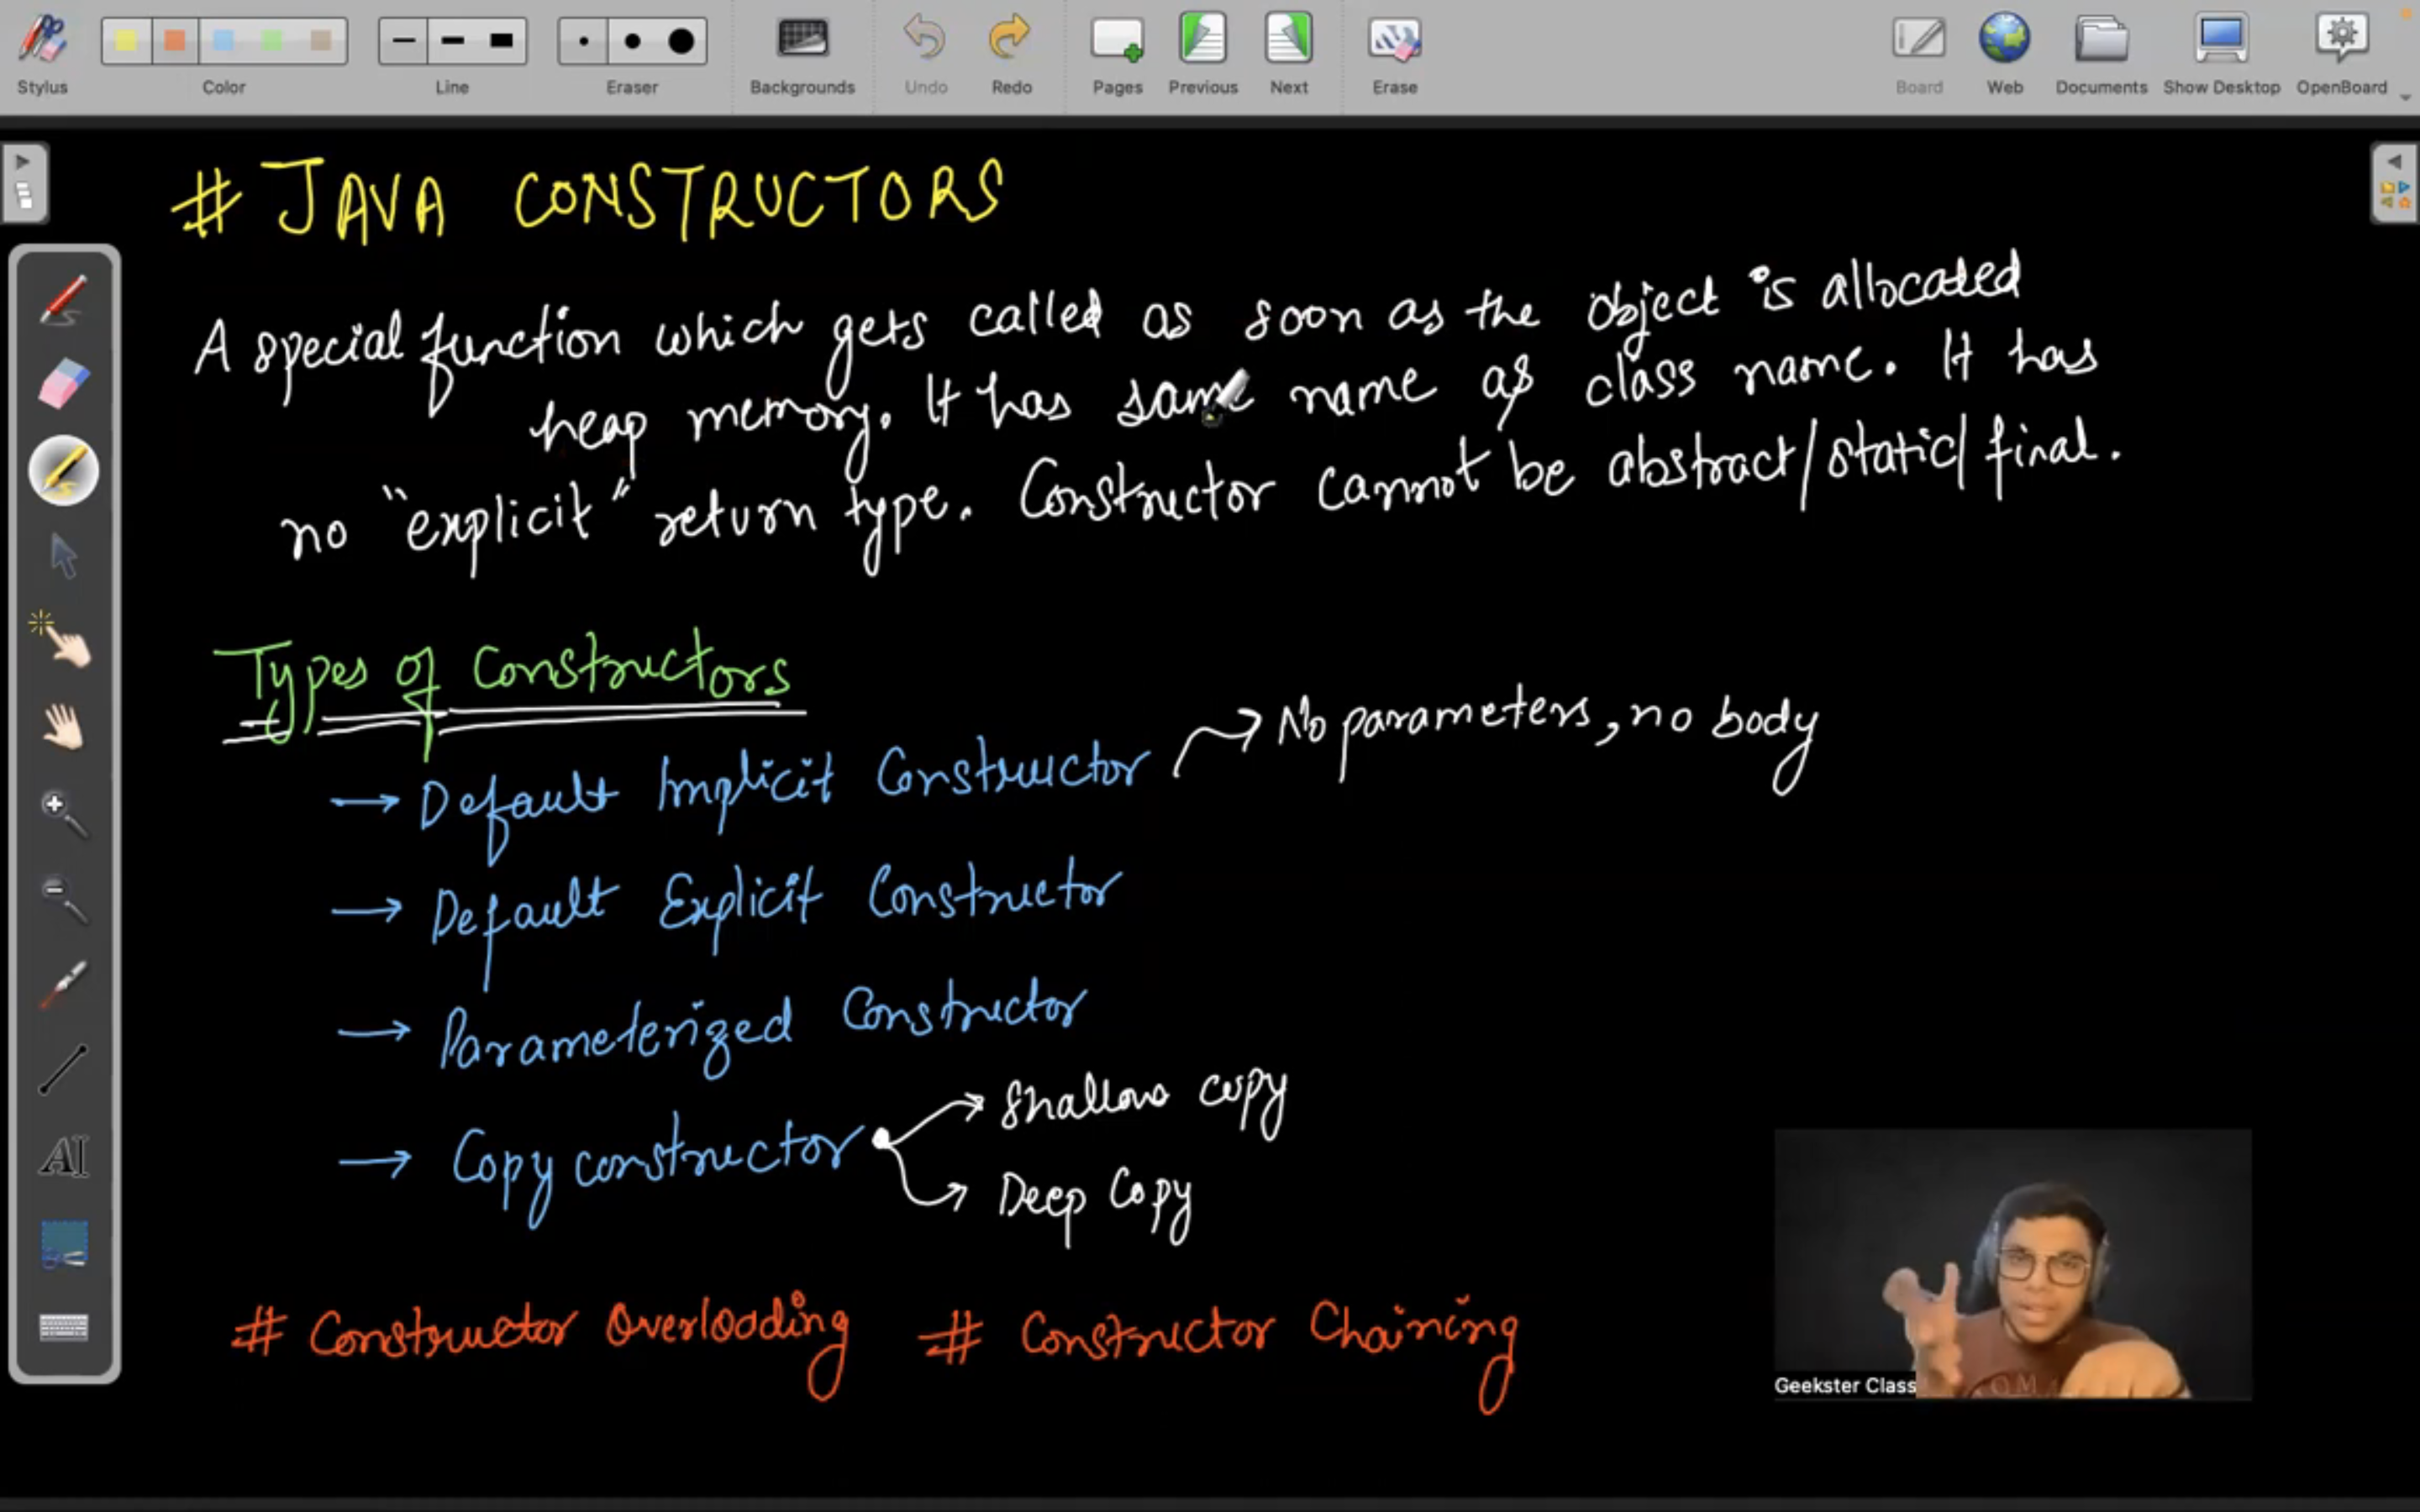 Stylus
Color
Line
Eraser
Backgrounds
Undo
Redo
Pages
Previous
Next
Erase
Board
Web
Documents
Show Desktop
OpenBoard
# JAVA CONSTRUCTORS
A special function which gets called as soon as the object is allocated
heap memory. It has same name as class name. It has
no "explicit" return type. Constructor cannot be abstract/static/final.
Types of Constructors
→ Default Implicit Constructor → No parameters, no body
→ Default Explicit Constructor
→ Parameterized Constructor
→ Copy constructor → Shallow copy
→ Deep Copy
# Constructor Overloading # Constructor Chaining
AI
Geekster Class